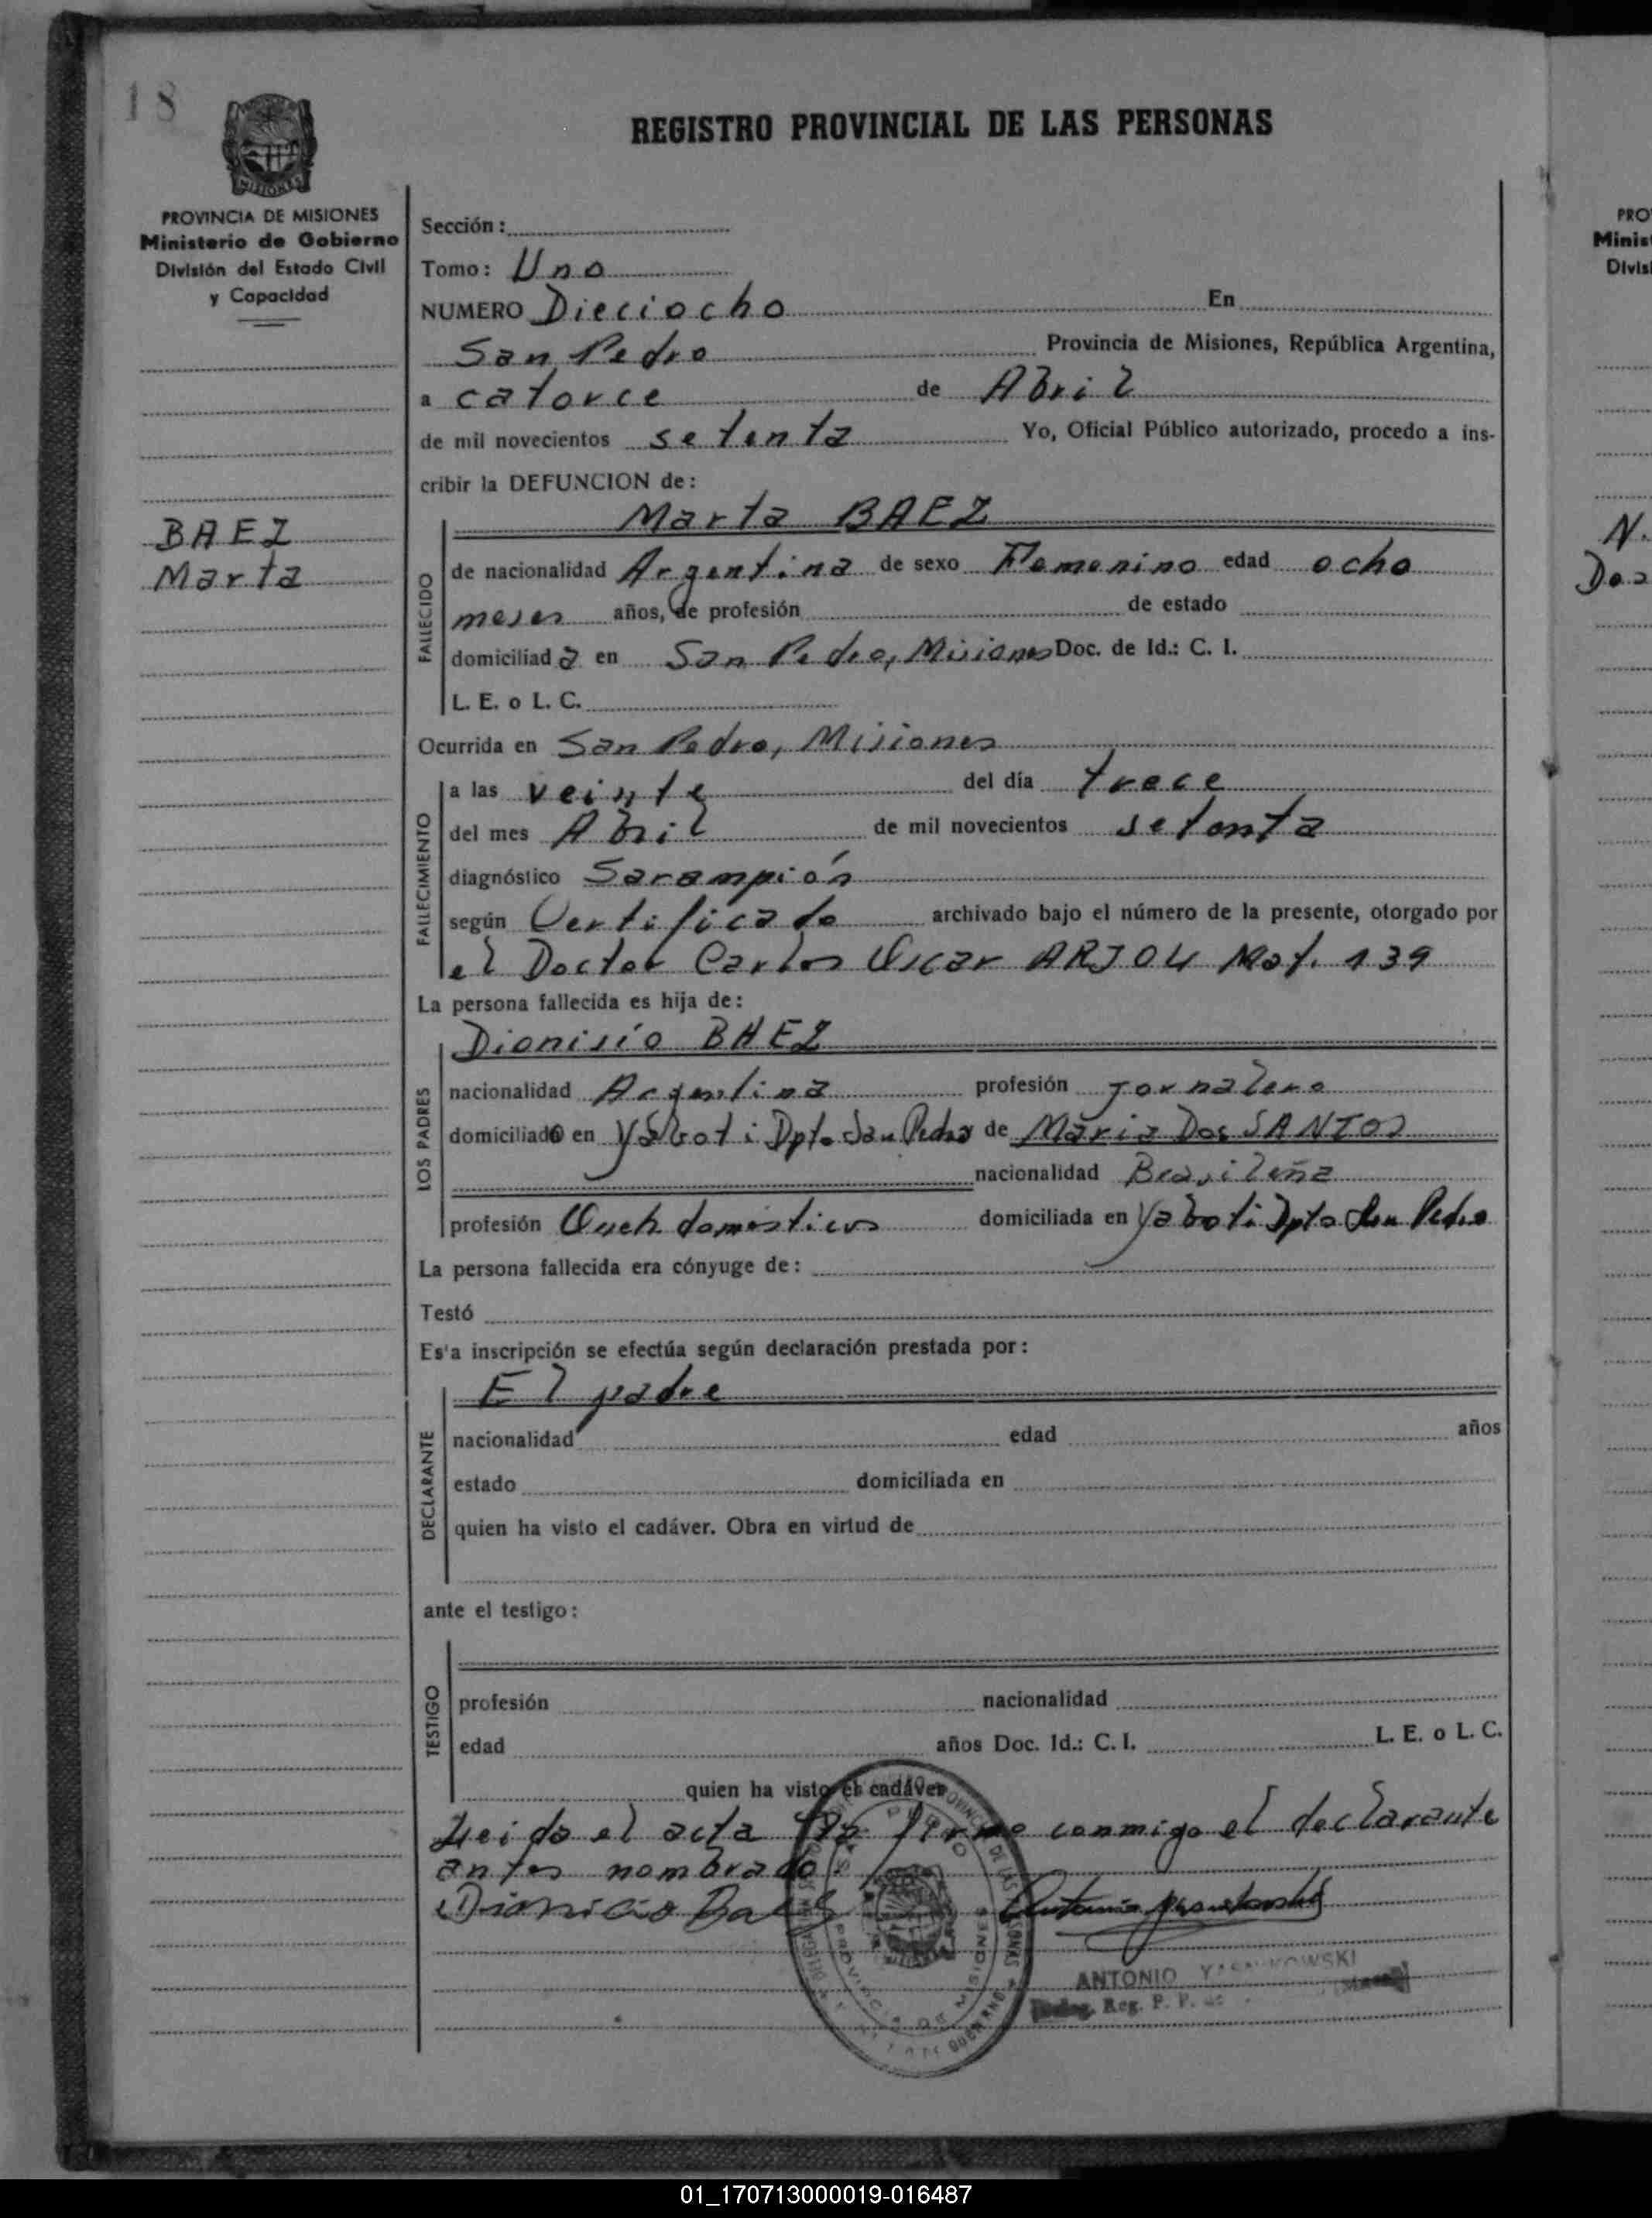 18
MISIONES
REGISTRO PROVINCIAL DE LAS PERSONAS
PROVINCIA DE MISIONES
Ministerio de Gobierno
División del Estado Civil
y Capacidad
BAEZ
Marta
Sección:
Tomo: Uno
NUMERO Dieciocho En
San Pedro Provincia de Misiones, República Argentina,
a catorce de Abril
de mil novecientos setenta Yo, Oficial Público autorizado, procedo a ins-
cribir la DEFUNCION de:
Marta BAEZ
FALLECIDO
de nacionalidad Argentina de sexo Femenino edad ocho
meses años, de profesión de estado
domiciliada en San Pedro, Misiones Doc. de Id.: C. I.
L. E. o L. C.
Ocurrida en San Pedro, Misiones
FALLECIMIENTO
a las veinte del día trece
del mes Abril de mil novecientos setenta
diagnóstico Sarampión
según Certificado archivado bajo el número de la presente, otorgado por
el Doctor Carlos Oscar ARJOU Mat. 139
La persona fallecida es hija de:
Dionisio BAEZ
LOS PADRES
nacionalidad Argentina profesión Jornalero
domiciliado en Yaboti Dpto San Pedro de Maria Dos SANTOS
nacionalidad Brasileña
profesión Queh domesticos domiciliada en Yaboti Dpto San Pedro
La persona fallecida era cónyuge de:
Testó
Es'a inscripción se efectúa según declaración prestada por:
El padre
DECLARANTE
nacionalidad edad años
estado domiciliada en
quien ha visto el cadáver. Obra en virtud de
ante el testigo:
TESTIGO
profesión nacionalidad
edad años Doc. Id.: C. I. L. E. o L. C.
quien ha visto el cadáver
Leida el acta la firma conmigo el declarante
antes nombrado.
Dionicio Baez
ANTONIO
Reg. P. P.
PROVINCIA DE MISIONES
PRO
Minis
Divis
N.
Dos
01_170713000019-016487